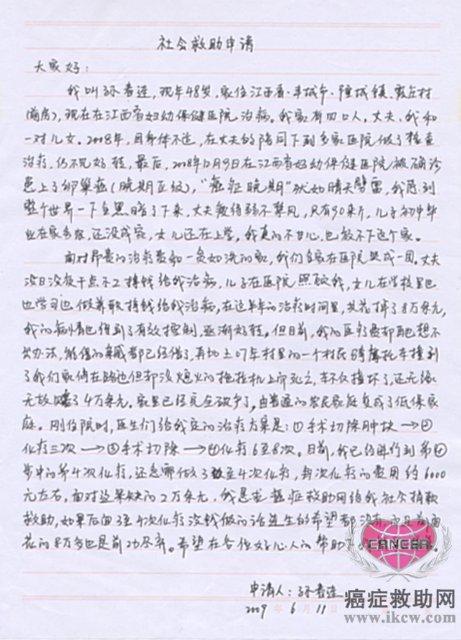 社会救助申请
大家好:
我叫孙春莲,现年48岁,家住江西省丰城市
现在在江西省妇幼保健医院治病。我家有四口人,丈夫、我和
一对儿女。2008年,因身体不适,在丈夫的陪同下到多家医院做了检查
治疗,仍不见好转,最后,2008年12月9日在江西省妇幼保健医院被确诊
患上了卵巢癌(晚期三级),“癌症晚期”犹如晴天霹雳,我感到
整个世界一下全黑暗了下来,丈夫瘦弱不禁风,只有90来斤,儿子初中毕
业在家务农,还没成家,女儿还在上学。我真的不甘心,也放不下这个家。
面对昂贵的治疗费和一贫如洗的家,我们全家在医院哭成一团,丈夫
没日没夜干点不工挣钱给我治病,儿子在医院照顾我,女儿在学校里也
边学习边做兼职挣钱给我治病,在这半年的治疗时间里,共花掉了8万多元,
我的病情也得到了有效控制,逐渐好转。但目前,我的医疗费却再也想不
出办法,能借的亲戚都已经借了,再加上
了我们家停在路边但却没熄火的拖拉机上
无故赔了4万多元。家里已经完全破产了,由普通的农民家庭变成了低保家
庭。刚住院时,医生们给我定的治疗方案是:①手术切除肿块→②
化疗三次→③手术切除→④化疗6至8次。目前,我已经进行到第④
步中的第4次化疗,还急需做3至4次化疗,每次化疗的费用约6000
元左右,面对这笔缺的2万多元,我恳求癌症救助网给我社会捐款
救助,如果后面3至4次化疗没钱做的话连生的希望都没
花的8万多也是前功尽弃。希望在各位好心人的帮助下
申请人:孙春莲
2009年6月11日
CANCER
癌症救助网
www.ikcw.com